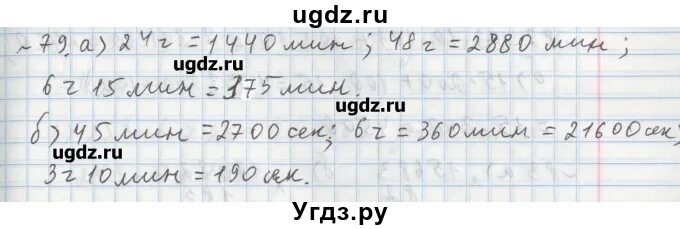 ugdz.ru
№79. а) 24 ч = 1440 мин; 48 ч = 2880 мин;
ugdz.ru
6 ч 15 мин = 375 мин.
ugdz.ru
б) 45 мин = 2700 сек; 6 ч = 360 мин = 21600 сек;
ugdz.ru
3 ч 10 мин = 190 сек.
Угдз.ру